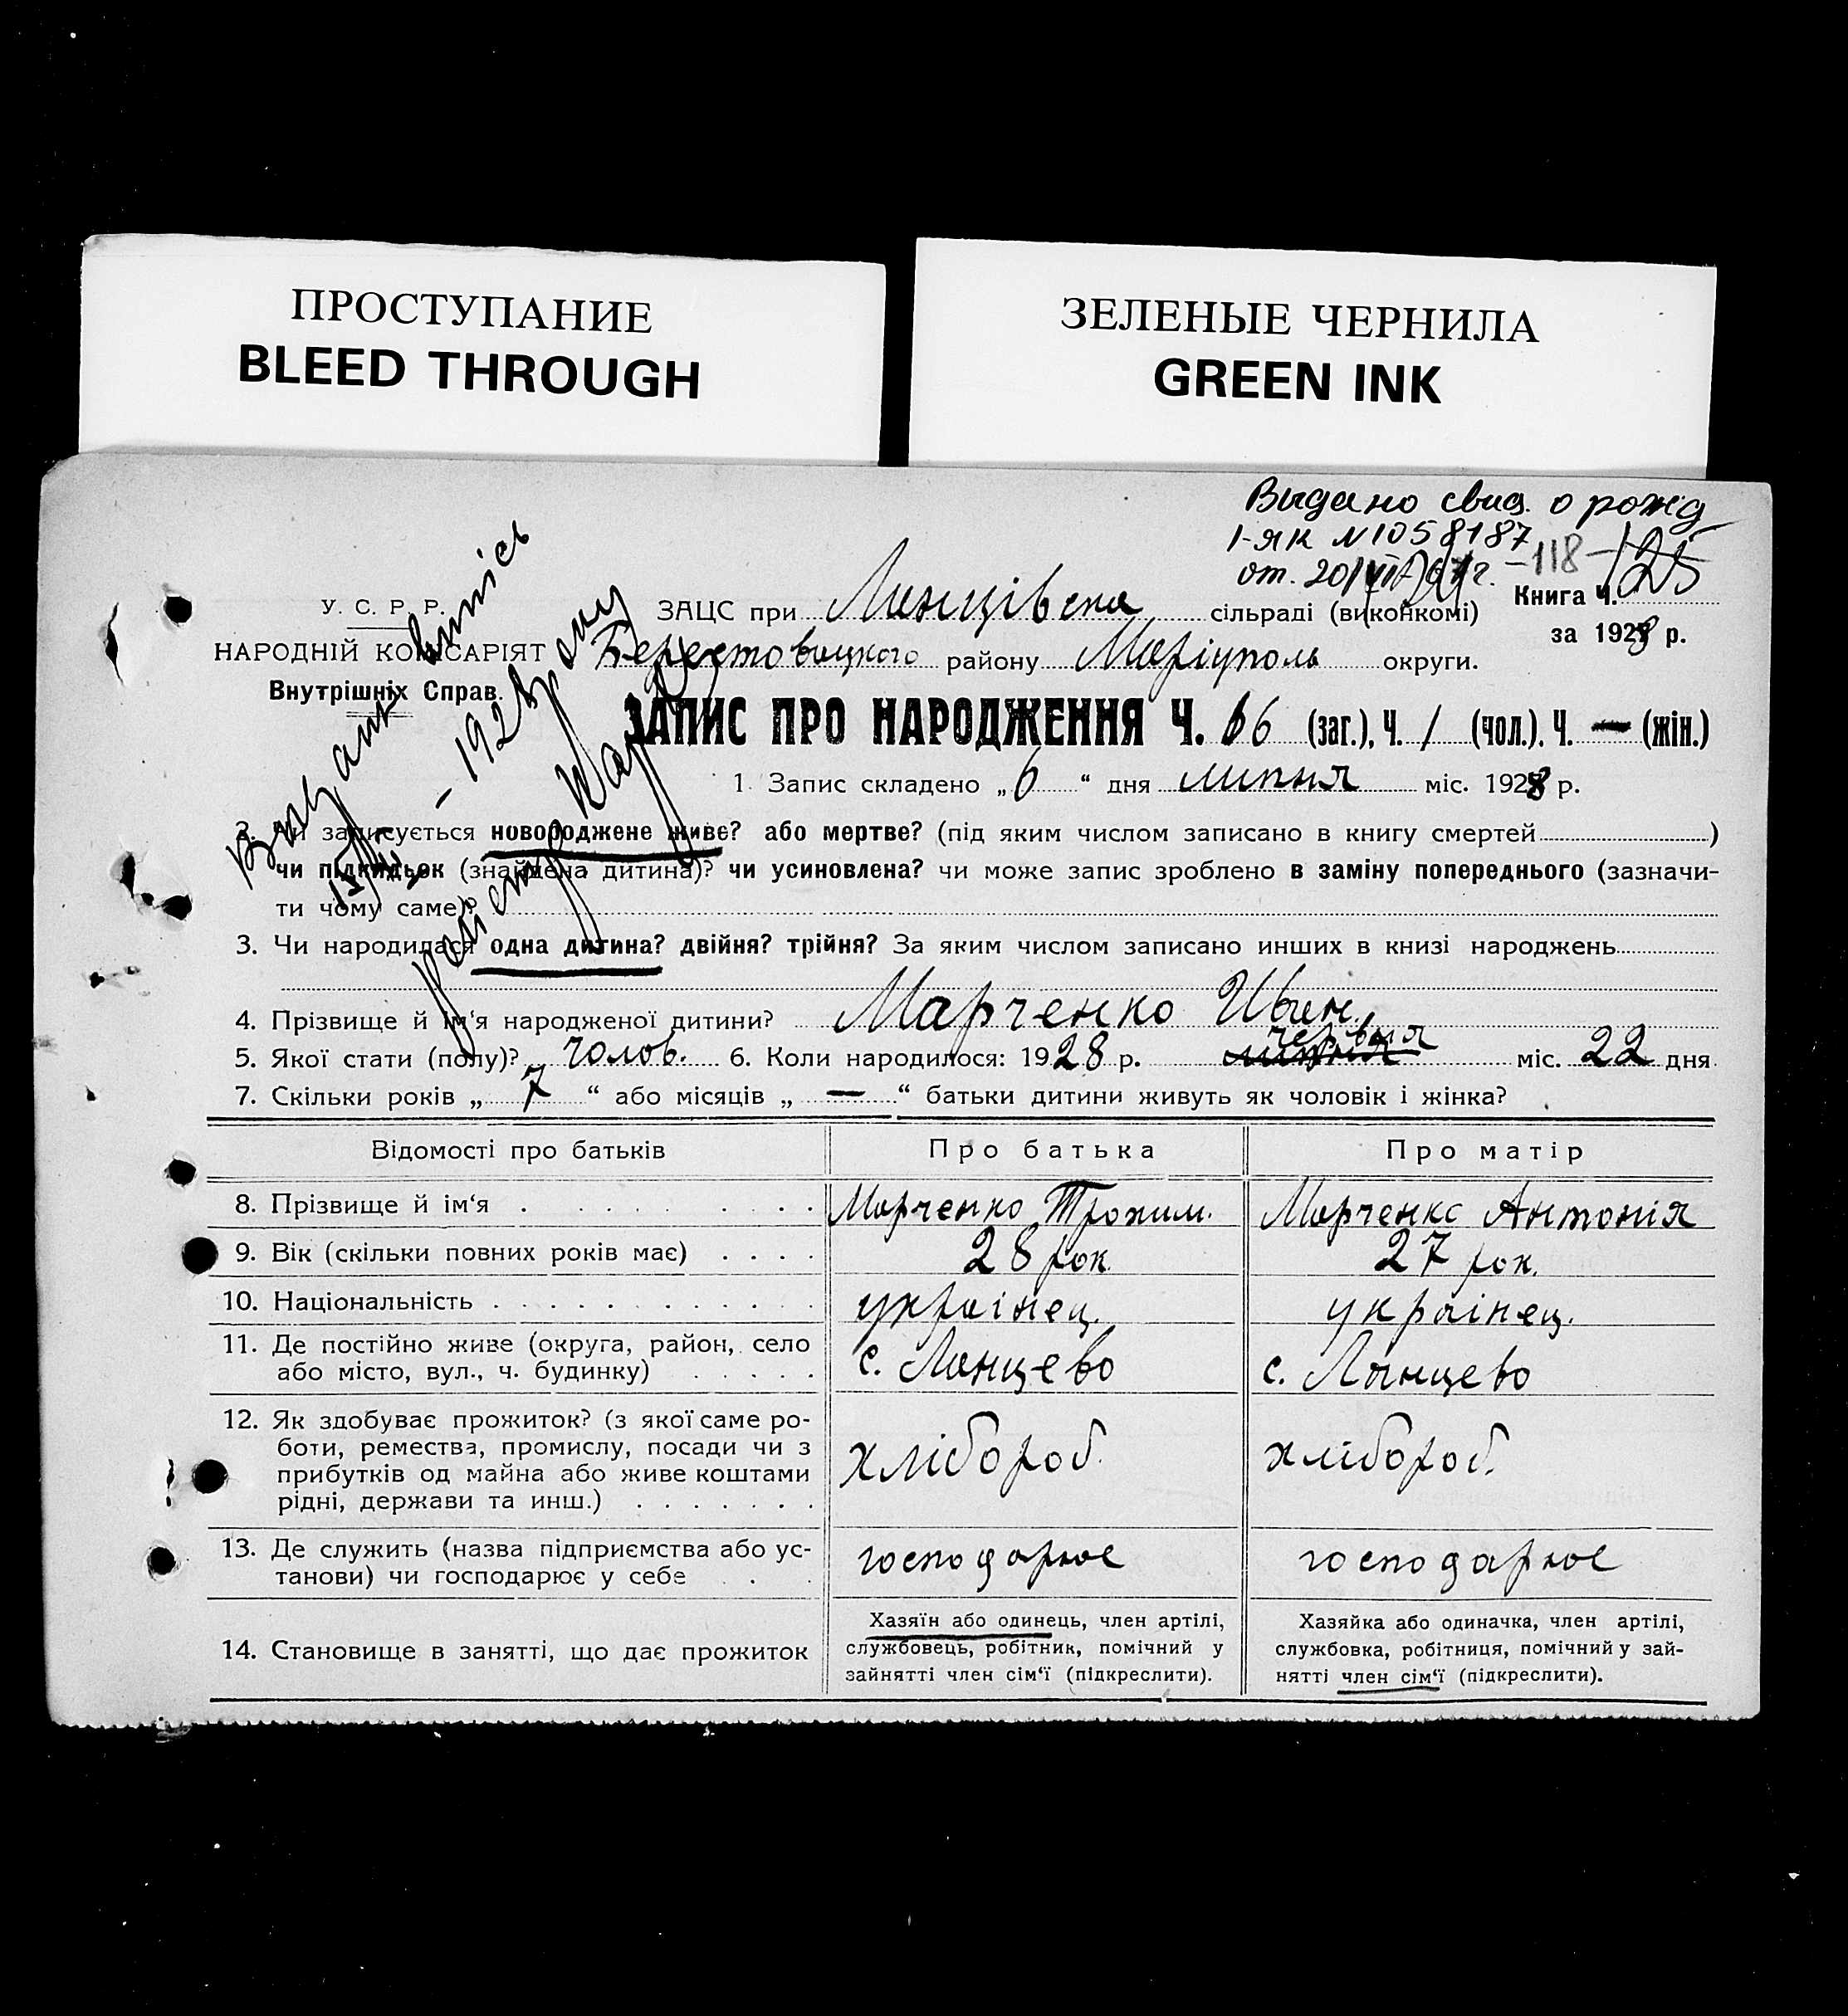 ПРОСТУПАНИЕ
BLEED THROUGH
ЗЕЛЕНЫЕ ЧЕРНИЛА
GREEN INK
Выдано свид. о рожд
I-як N1058187
от. 20
118
125
Книга Ч.
за 1928 р.
У. С. Р. Р.
НАРОДНІЙ КОМІСАРІЯТ
Внутрішніх Справ.
ЗАЦС при сільраді (виконкомі)
району Маріуполь округи.
ЗАПИС ПРО НАРОДЖЕННЯ Ч. 66 (заг.), Ч. 1 (чол.), Ч. — (жін.)
1. Запис складено „ 6 “ дня липня міс. 1928 р.
2. Чи записується новороджене живе? або мертве? (під яким числом записано в книгу смертей )
чи підкидьок (знайдена дитина)? чи усиновлена? чи може запис зроблено в заміну попереднього (зазначи-
ти чому саме)?
3. Чи народилася одна дитина? двійня? трійня? За яким числом записано инших в книзі народжень
4. Прізвище й ім‘я народженої дитини? Марченко Иван
5. Якої стати (полу)? чолов. 6. Коли народилося: 1928 р. червня міс. 22 дня
7. Скільки років „ 7 “ або місяців „ — “ батьки дитини живуть як чоловік і жінка?
Відомості про батьків Про батька Про матір
8. Прізвище й ім‘я Марченко Трохим. Марченко Антонія
9. Вік (скільки повних років має) 28 рок. 27 рок.
10. Національність українец. українец.
11. Де постійно живе (округа, район, село
або місто, вул., ч. будинку)
с. Ланцево
с. Ланцево
12. Як здобуває прожиток? (з якої саме ро-
боти, ремества, промислу, посади чи з
прибутків од майна або живе коштами
рідні, держави та инш.)
хлібороб.
хлібороб.
13. Де служить (назва підприємства або ус-
танови) чи господарює у себе
господарює
господарює
14. Становище в занятті, що дає прожиток
Хазяїн або одинець, член артілі,
службовець, робітник, помічний у
зайнятті член сім‘ї (підкреслити).
Хазяйка або одиначка, член артілі,
службовка, робітниця, помічний у зай-
нятті член сім‘ї (підкреслити).